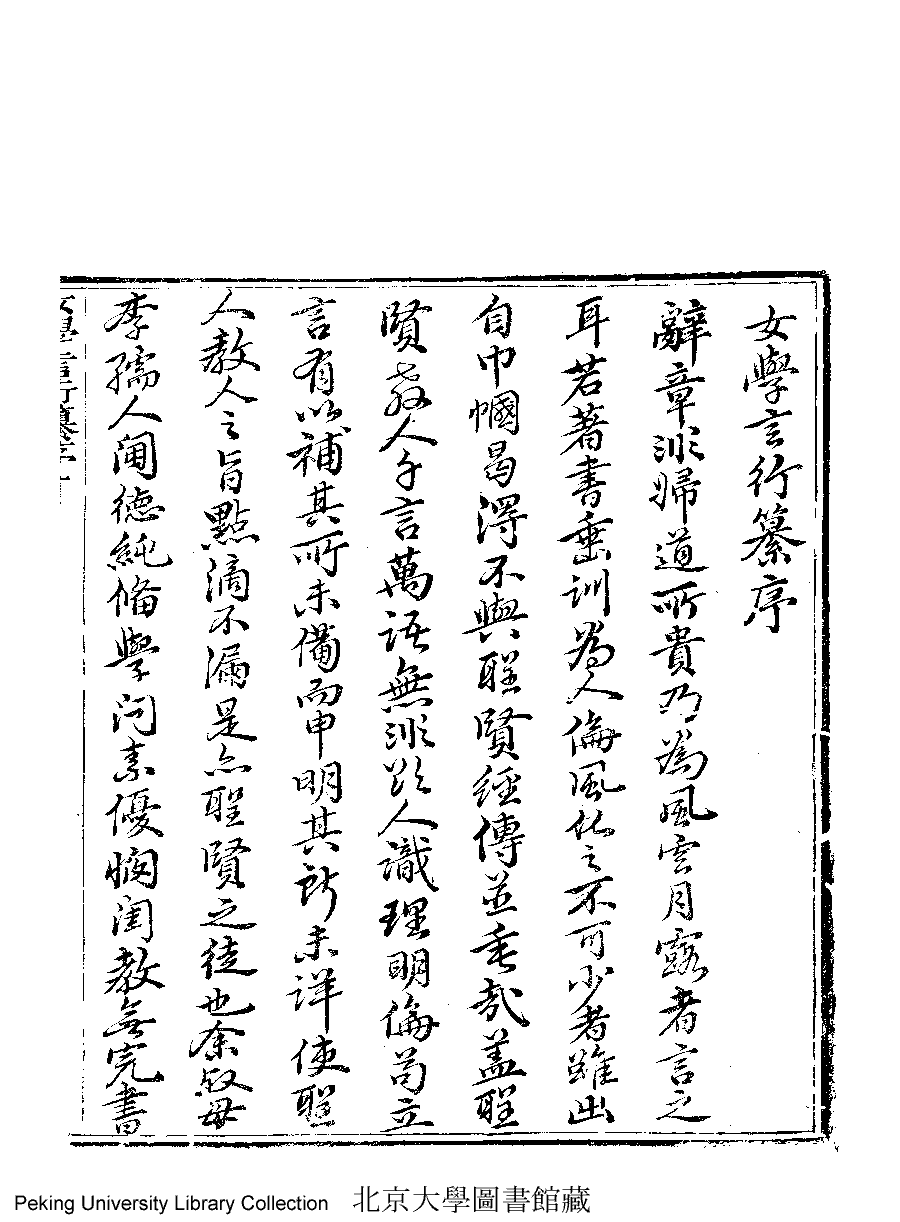 女學言行纂序
辭章非婦道所貴乃為風雲月露者言之
耳若著書垂訓為人倫風化之不可少者雖出
自巾幗曷得不與聖賢經傳並垂哉蓋聖
賢教人千言萬語無非欲人識理明倫苟立
言有以補其所未備而申明其所未詳使聖
人教人之旨點滴不漏是亦聖賢之徒也余叔母
李孺人閫德純脩學問素優憫閨教無完書
女學言行纂序
Peking University Library Collection 北京大學圖書館藏